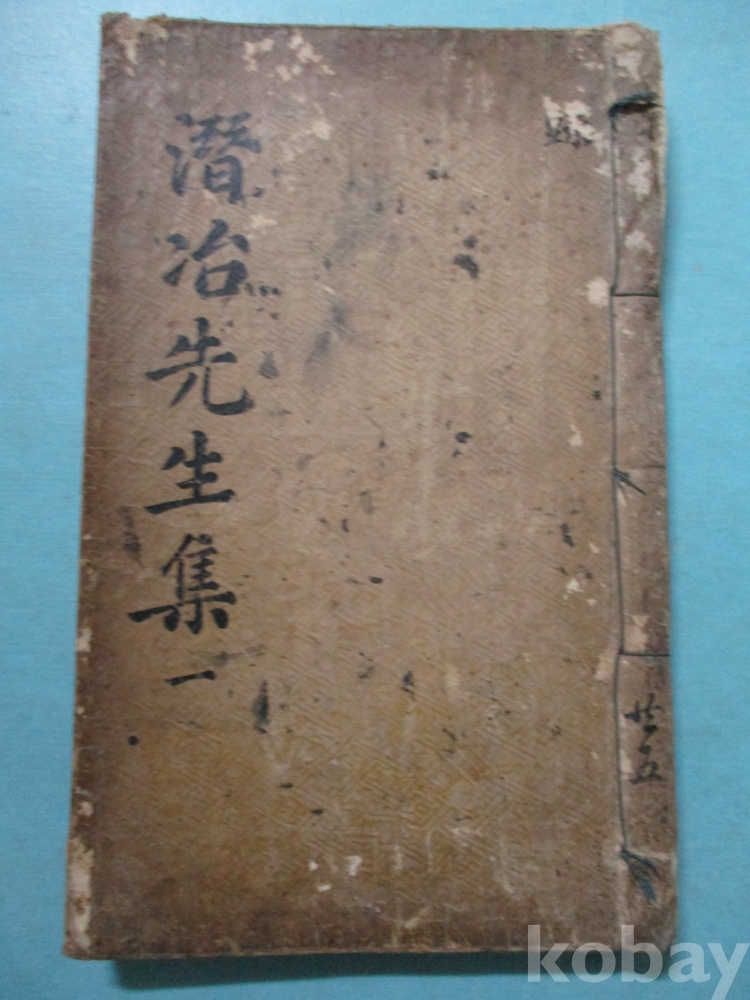 潜冶先生集一
共五
kobay